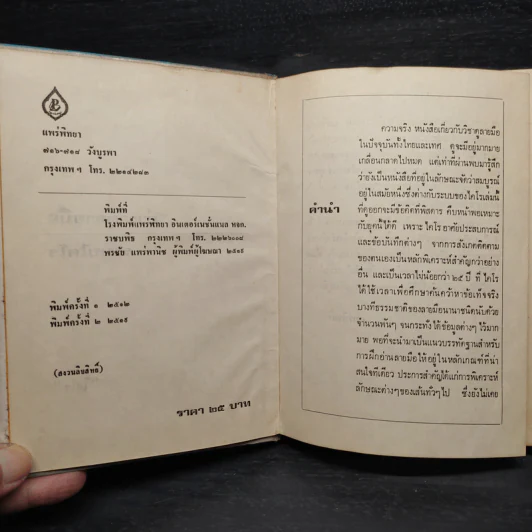 แพร่พิทยา
๗๑๖-๗๑๘ วังบูรพา
กรุงเทพ ฯ โทร. ๒๒๑๔๒๘๓
พิมพ์ที่
โรงพิมพ์แพร่พิทยา อินเตอร์เนชั่นแนล หจก.
ราชบพิธ กรุงเทพ ฯ โทร.
พรชัย แพร่พานิช ผู้พิมพ์ผู้โฆษณา ๒๕๑๙
พิมพ์ครั้งที่ ๑ ๒๕๑๒
พิมพ์ครั้งที่ ๒ ๒๕๑๙
(สงวนลิขสิทธิ์)
ราคา ๒๕ บาท
คำนำ
ความจริง หนังสือเกี่ยวกับวิชาดูลายมือ
ในปัจจุบันทั้งไทยและเทศ ดูจะมีอยู่มากมาย
เกลื่อนกลาดไปหมด แต่เท่าที่ผ่านพบมารู้สึก
ว่ายังเป็นหนังสือที่อยู่ในลักษณะจัดว่าสมบูรณ์
อยู่ในสมัยหนึ่งซึ่งต่างกับระบบของไคโรเล่มนี้
ที่ดูออกจะมีข้อคิดที่พิสดาร คืบหน้าพอเหมาะ
กับยุคนี้ได้ดี เพราะ ไคโร อาศัยประสบการณ์
และข้อบันทึกต่างๆ จากการสังเกตติดตาม
ของตนเองเป็นหลักพิเคราะห์สำคัญกว่าอย่าง
อื่น และเป็นเวลาไม่น้อยกว่า ๒๕ ปี ที่ ไคโร
ได้ใช้เวลาเพื่อศึกษาค้นคว้าหาข้อเท็จจริง
บางที่ธรรมชาติของลายมือนานาชนิดนับด้วย
จำนวนพันๆ จนกระทั่งได้ข้อมูลต่างๆ ไว้มาก
มาย พอที่จะนำมาเป็นแนวบรรทัดฐานสำหรับ
การฝึกอ่านลายมือให้อยู่ในหลักเกณฑ์ที่น่า
สนใจทีเดียว ประการสำคัญได้แก่การพิเคราะห์
ลักษณะต่างๆของเส้นทั่วๆไป ซึ่งยังไม่เคย